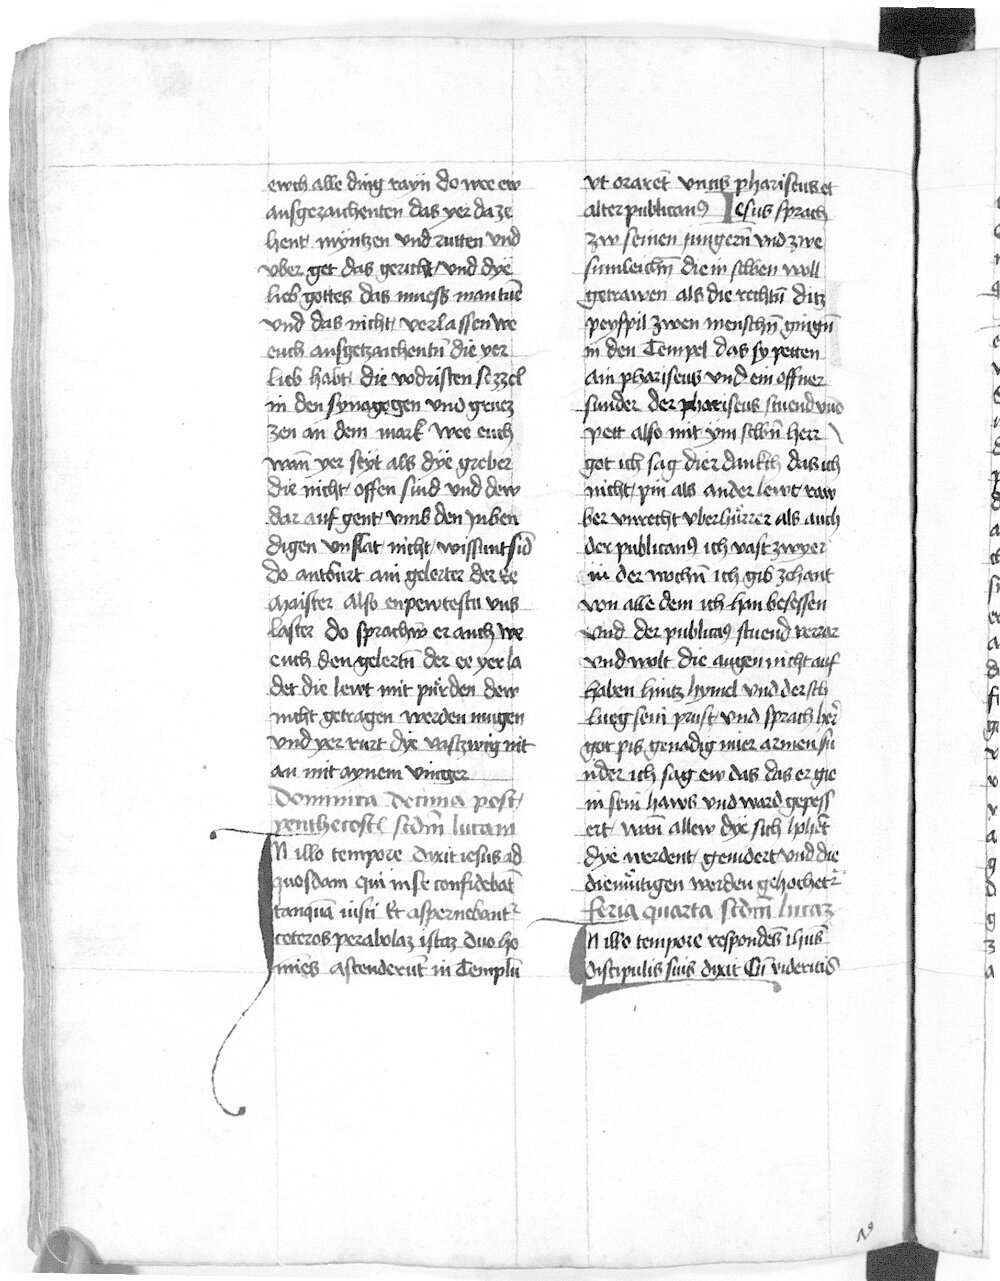 ewch alle ding rayn do wee ew
ausgezaichenten das yer da ze
hent myntzen vnd rutten vnd
vber get das gericht vnd dye
lieb gottes das muess man tuen
vnd das nicht verlassen we
euch ausgetzaichentn̄ die yer
lieb habt die vodristen sezzel
in den synagogen vnd gruez
zen an dem mark wee euch
wan̄ yer seyt als dye greber
die nicht offen sind vnd dew
dar auf gent vmb den
digen vnflat nicht wissunt sid
do antburt ain gelerter der ee
Maister also enpewtestu vns
laster do sprachn̄ er auch we
euch den gelertn̄ der ee yer la
det die lewt mit pürden dew
nicht getragen werden mugen
vnd yer rurt dye vastzwig nit
an mit aynem vinger
Dominica decima post
penthecostē scdm̄ lucam
In illo tempore dixit iesus ad
quosdam qui in se confidebāt
tanquā iusti Et aspernebantr
ceteros parabolaz istaz duo ho
mīes ascenderūt in Templū
vt orarēt vnus phariseus et
alter publicanꝰ Jesus sprach
zw seinen jungern̄ vnd zwe
sumleichn̄ die in selben woll
getrawen als die rechtn̄ ditz
peyspil zwen menschn̄ gingn̄
in den Tempel das sy peten
ain phariseus vnd ein offner
sunder der phariseus stuend vnd
pett also mit ym selbn̄ herr
got ich sag dier dankch das ich
nicht pin als ander lewt raw
ber vnrecht vberhurrer als auch
der publicanꝰ ich vast zwyer
in der wochn̄ ich gib zehant
von alle dem ich han besessen
vnd der publicāꝰ stuend verrar
vnd wolt die augen nicht auf
haben hintz hymel vnd der sch
lueg sein prust vnd sprach her
got pis genadig mier armen su
nder ich sag ew das das er gie
in sein haws vnd ward gepess
ert wan̄ allew dye sich hohēt
dye werdent genidert vnd die
diemütigen werden gehochet
feria quarta scdm̄ lucaz
In illo tempore respondēs ihūs
discipulis suis dixit Cū videritis